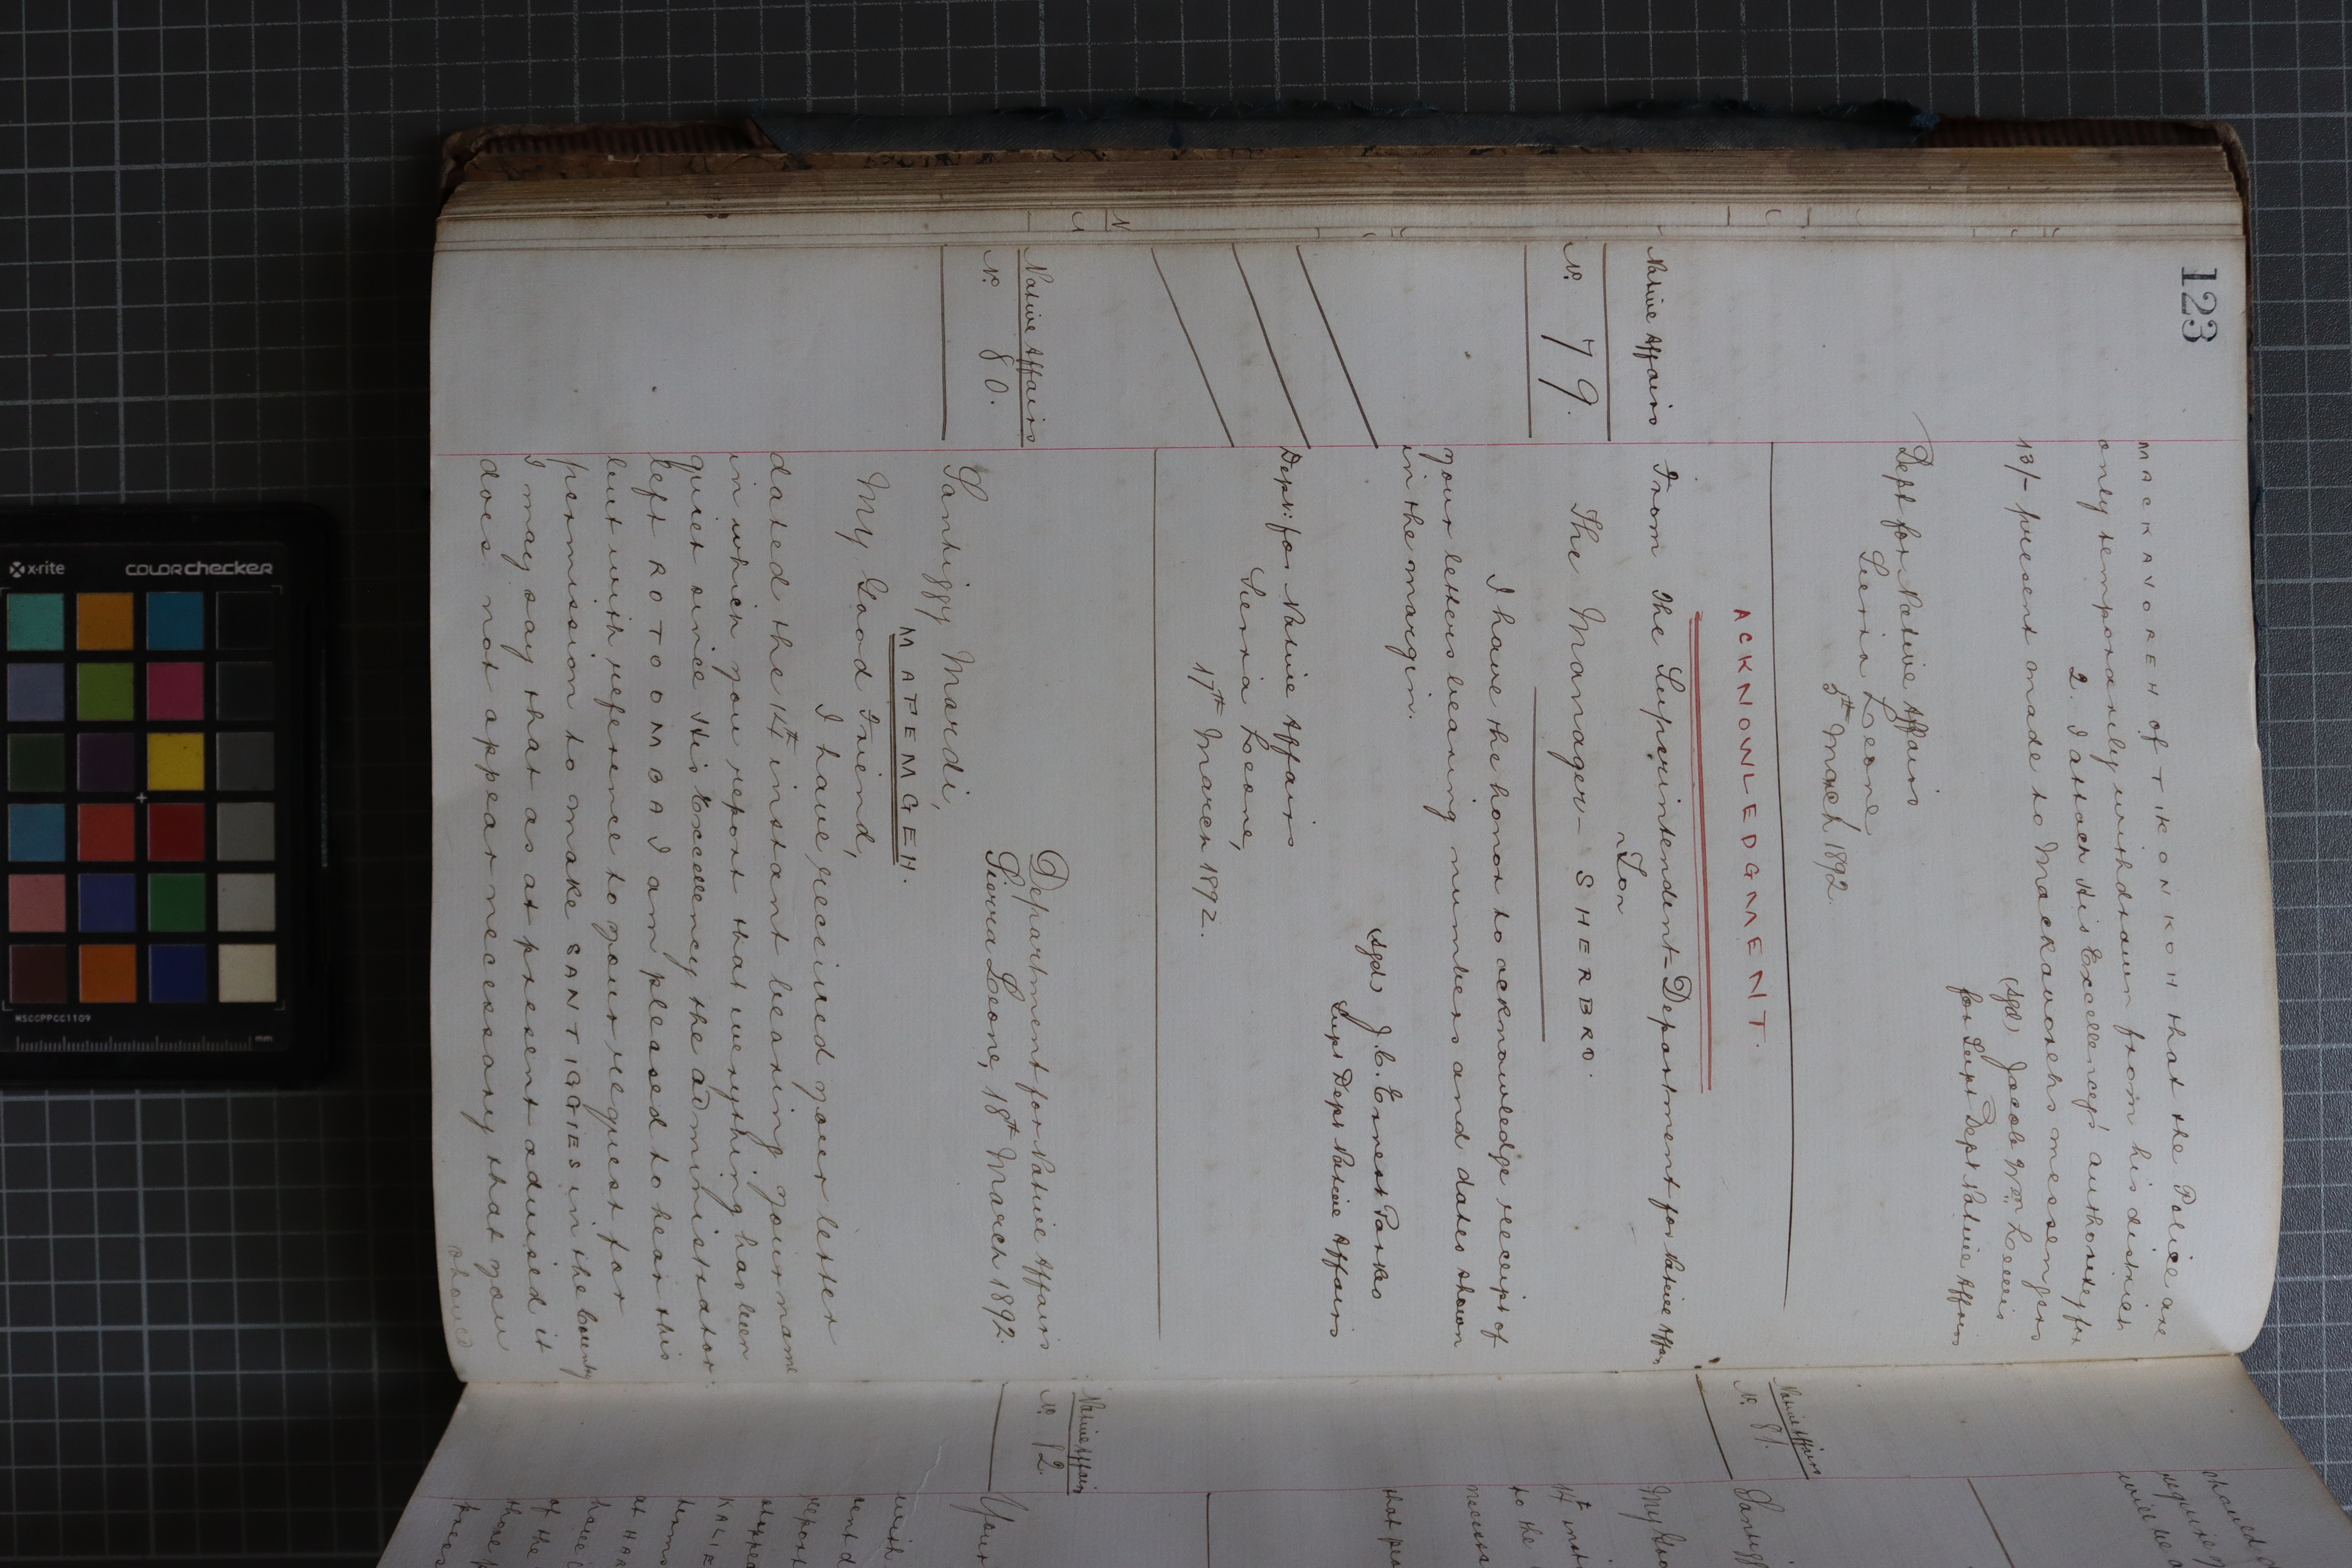 123
MACKAVOREH of TIKONKOH that the Police are
only temporarily withdrawn from his district
2. I attach His Excellency's authority for
13/- present made to Mackavorehs messengers
(sgd) Jacob Wm Lewis
for Supt Dept Native Affairs
Dept for Native Affairs
Sierra Leone
5th March 1892.
ACKNOWLEDGMENT.
Native Affairs
No. 79.
From The Superintendent - Department for Native Affrs
To
The Manager - SHERBRO.
I have the honor to acknowledge receipt of
your letters bearing numbers and dates shown
in the margin.
(sgd) J. C. Ernest Parkes
Supt Dept Native Affairs
Dept: for Native Affairs
Sierra Leone,
17th March 1892.
Native Affairs
No. 80.
Department for Native Affairs
Sierra Leone, 18th March 1892.
Santiggy Mardi,
MATEMGEH.
My Good Friend,
I have received your letter
dated the 14th instant bearing your name
in which you report that everything has been
quiet since His Excellency the Administrator
left ROTOOMBA I am pleased to hear this
but with reference to your request for
permission to make SANTIGGIES in the County
I may say that as at present advised it
does not appear necessary that you
should
should
require
will be
Native Affairs
No. 81.
Santigg
My Goo
14th inst
to the
necessa
that pea
Native Affairs
No. 82.
Your
with
sent d
report
stoppe
KALIE
terms
at HAR
have
of the
those